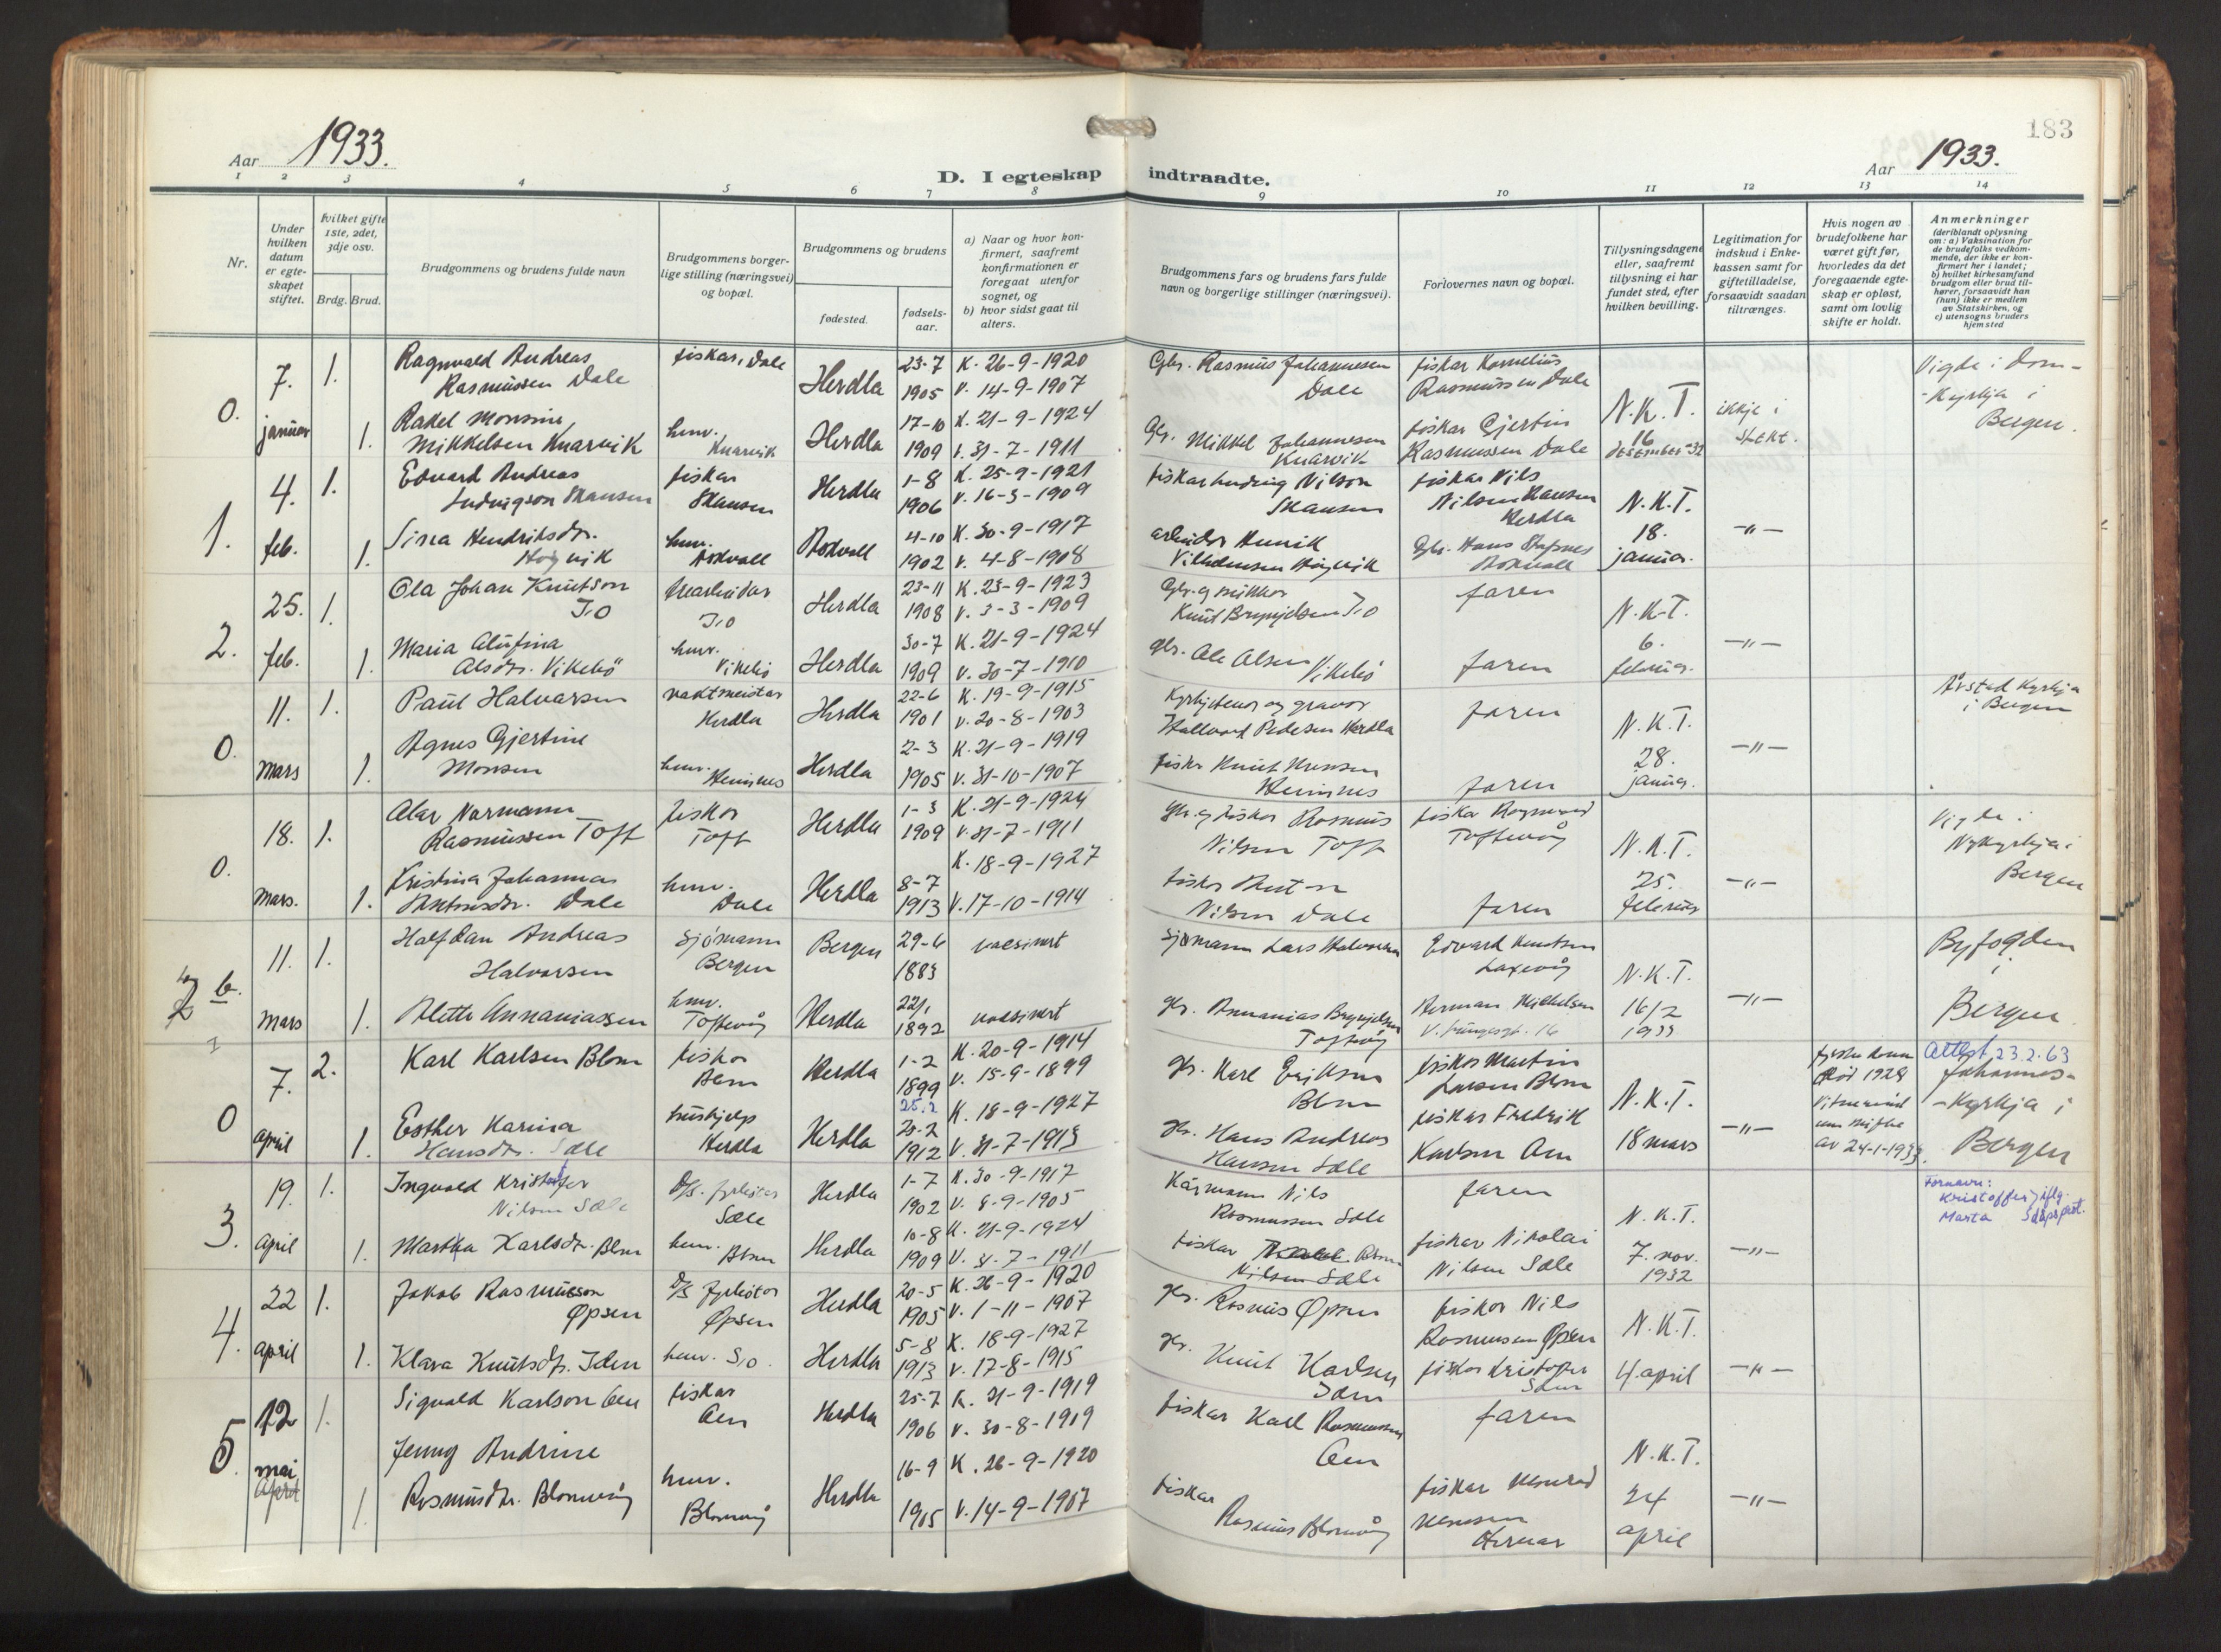 183
Aar 1933.
D. I egteskap indtraadte.
Aar 1933.
1 2 3 4 5 6 7 8 9 10 11 12 13 14
Nr.
Under hvilken datum er egteskapet stiftet.
Hvilket gifte 1ste, 2det, 3dje osv.
Brdg. Brud.
Brudgommens og brudens fulde navn
Brudgommens borgerlige stilling (næringsvei) og bopæl.
Brudgommens og brudens
fødested.
fødselsaar.
a) Naar og hvor konfirmert, saafremt konfirmationen er foregaat utenfor sognet, og
b) hvor sidst gaat til alters.
Brudgommens fars og brudens fars fulde navn og borgerlige stillinger (næringsvei).
Forlovernes navn og bopæl.
Tillysningsdagene eller, saafremt tillysning ei har fundet sted, efter hvilken bevilling.
Legitimation for indskud i Enkekassen samt for giftetilladelse, forsaavidt saadan tiltrænges.
Hvis nogen av brudefolkene har været gift før, hvorledes da det foregaaende egteskap er opløst, samt om lovlig skifte er holdt.
Anmerkninger
(deriblandt oplysning om: a) Vaksination for de brudefolks vedkommende, der ikke er konfirmert her i landet;
b) hvilket kirkesamfund brudgom eller brud tilhører, forsaavidt han (hun) ikke er medlem av Statskirken, og
c) utensogns bruders hjemsted
0. 7. januar 1. Ragnvald Andreas Rasmussen Dale fiskar, Dale Herdla 23-7 1905 K. 26-9-1920 V. 14-9-1907 Gbr. Rasmus Johannesen Dale fiskar Kornelius Rasmussen Dale N.K.T. 16 desember -32 ikkje i stekt. Vigde i Dom-kyrkja i Bergen.
1. Rakel Monsine Mikkelsen Knarvik husv. Knarvik Herdla 17-10 1909 K. 21-9-1924 V. 31-7-1911 Gbr. Mikkel Johannesen Knarvik fiskar Gjertin Rasmussen Dale
1. 4. feb. 1. Edvard Andreas Ludvigson Skansen fiskar Skansen Herdla 1-8 1906 K. 25-9-1921 V. 16-3-1909 fiskar Ludvig Nilson Skansen fiskar Nils Nilsen Hansen Herdla N.K.T. 18. januar. -"-
1. Sina Hendriksdr. Høgvik husv. Askvoll Askvoll 4-10 1902 K. 30-9-1917 V. 4-8-1908 arbeider Henrik Vilhelmsen Høgvik Gbr. Hans Stafsnes Askvoll
2. 25. feb. 1. Ola Johan Knutson Io Herdla 23-11 1908 K. 23-9-1923 V. 3-3-1909 Gbr. og Knut Brynjelsen Io faren N.K.T. 6. februar. -"-
1. Maria Alufina Olsdr. Vikebø husv. Vikebø Herdla 30-7 1909 K. 21-9-1924 V. 30-7-1910 gbr. Ole Olsen Vikebø faren
0. 11. mars 1. Paul Halvorsen vaktmeister Herdla Herdla 22-6 1901 K. 19-9-1915 V. 20-8-1903 Kyrkjetenar og gravar Hallvard Pedersen Herdla faren N.K.T. 28. januar. -"- Årstad Kyrkja i Bergen
1. Agnes Gjertine Monsen husv. Hennes Herdla 2-3 1905 K. 21-9-1919 V. 31-10-1907 fisker Knut Monsen Hennes faren
0. 18. mars. 1. Olav Normann Rasmussen Toft fiskar Toft Herdla 1-3 1909 K. 21-9-1924 V. 31-7-1911 gbr. og fiskar Rasmus Nilsen Toft fiskar Toftevåg N.K.T. 25. februar -"- Vigde i Nykyrkja i Bergen
1. Kristina Johannes Antonsdr. Dale husv. Dale Herdla 8-7 1913 K. 18-9-1927 V. 17-10-1914 fiskar Anton Nilsen Dale faren
b. 11. mars 1. Halfdan Andreas Halvorsen Sjømann Bergen Bergen 29-6 1883 vaksinert Sjømann Lars Halvorsen Edvard Knutsen Laxevåg N.K.T. 16/2 1933 -"- Byfogden i Bergen
1. Alette Annaniassen husv. Toftevåg Herdla 22/1 1892 vaksinert gbr. Annanias Brynjelsen Toftevåg Herman Mickelsen
0 7. april 2. Karl Karlsen Blom fiskar Blom Herdla 1-2 1899 K. 20-9-1914 V. 15-9-1899 gbr. Karl Eriksen Blom fiskar Martin Larsen Blom N.K.T. 18 mars -"- fyrste kona død 1928 Vitnemål um skifte av 24-1-1933. Attest 23.2.63 Johannes-Kyrkja i Bergen
1. Esther Karina Hansdr. Sæle hushjelp Herdla Herdla 25.2 25-2 1912 K. 18-9-1927 V. 31-7-1913 gbr. Hans Andreas Hansen Sæle fiskar Fredrik Karlsen Oen
3. 19. april 1. Ingvald Kristofer Nilsen Sæle D/S. fyrbøtar Sæle Herdla 1-7 1902 K. 30-9-1917 V. 8-9-1905 Kårmann Nils Rasmussen Sæle faren N.K.T. 7. nov. 1932 -"- Fornavn: Kristoffer iflg. Marta dåpsprot.
1. Martha Karlsdr. Blom husv. Blom Herdla 10-8 1909 K. 21-9-1924 V. 31-7-1911 fiskar Blom Nilsen Sæle fiskar Nikolai Nilsen Sæle
4. 22 april 1. Jakob Rasmusson Øpsen D/S fyrbøtar Øpsen Herdla 20-5 1905 K. 26-9-1920 V. 1-11-1907 gbr. Rasmus Øpsen fiskar Nils Rasmussen Øpsen N.K.T. 4. april -"-
1. Klara Knutsdr. Iden husv. Io. Herdla 5-8 1913 K. 18-9-1927 V. 17-8-1915 gbr. Knut Karlsen Iden fiskar Kristofer Iden
5. 12 mai 1. Sigvald Karlson Oen fiskar Oen Herdla 25-7 1906 K. 21-9-1919 V. 30-8-1909 fiskar Karl Rasmussen Oen faren N.K.T. 24 april -"-
April 1. Jenny Andrine Rasmusdr. Blomvåg husv. Blomvåg Herdla 16-9 1905 K. 26-9-1920 V. 14-9-1907 fiskar Rasmus Blomvåg fiskar Monsen Hernar